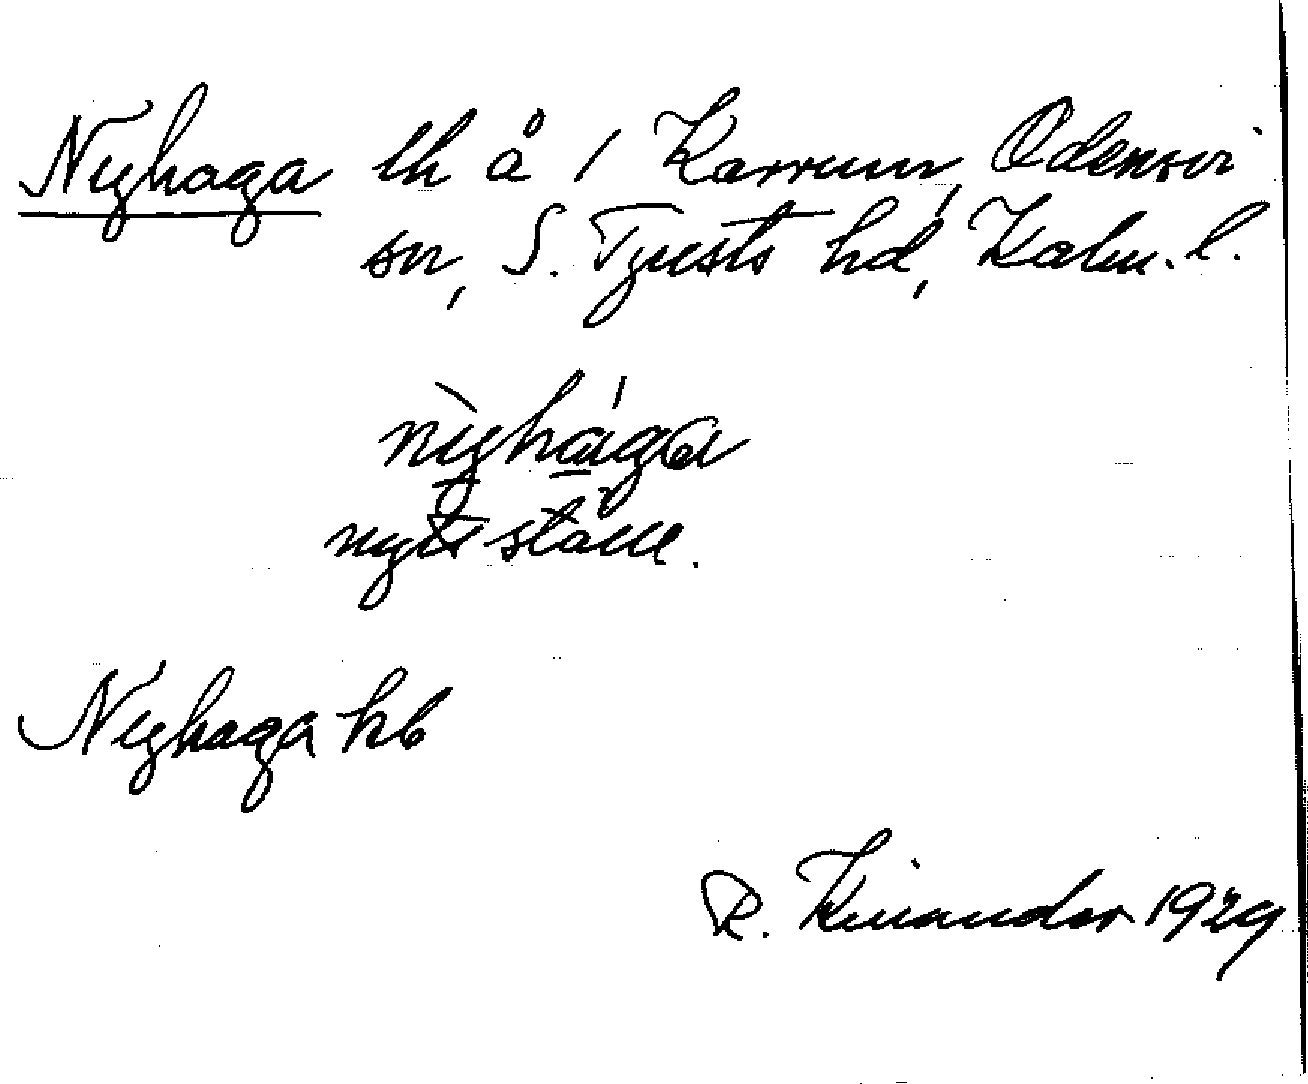 Nyhaga lh å 1 Karrum, Odensvi
sn, S. Tjusts hd, Kalm. l.
nỳhága
nytt ställe.
Nyhaga kb
R. Kinander 1929